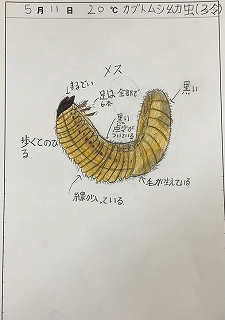 5月11日 20℃ カブトムシよう虫(3令)
メス
するどい
足は全部で
6本
黒い
黒い
点々が
ついている
歩くとのび
る
毛が生えている
線が入っている